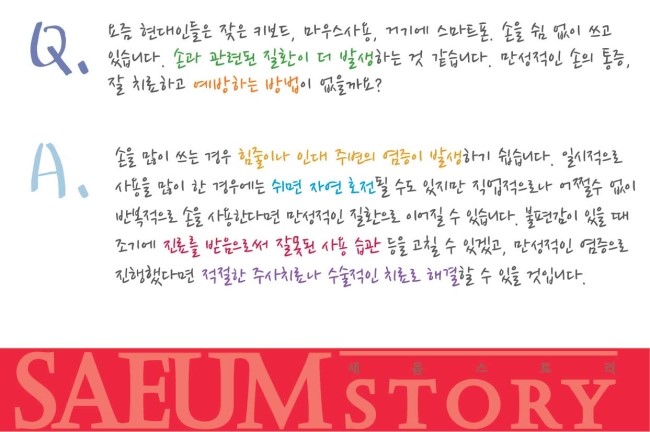 Q. 요즘 현대인들은 잦은 키보드, 마우스사용, 거기에 스마트폰. 손을 쉼 없이 쓰고
있습니다. 손과 관련된 질환이 더 발생하는 것 같습니다. 만성적인 손의 통증,
잘 치료하고 예방하는 방법이 없을까요?
A. 손을 많이 쓰는 경우 힘줄이나 인대 주변의 염증이 발생하기 쉽습니다. 일시적으로
사용을 많이 한 경우에는 쉬면 자연 호전될 수도 있지만 직업적으로나 어쩔수 없이
반복적으로 손을 사용한다면 만성적인 질환으로 이어질 수 있습니다. 불편감이 있을 때
조기에 진료를 받음으로써 잘못된 사용 습관 등을 고칠 수 있겠고, 만성적인 염증으로
진행했다면 적절한 주사치료나 수술적인 치료로 해결할 수 있을 것입니다.
새움스토리
SAEUM STORY